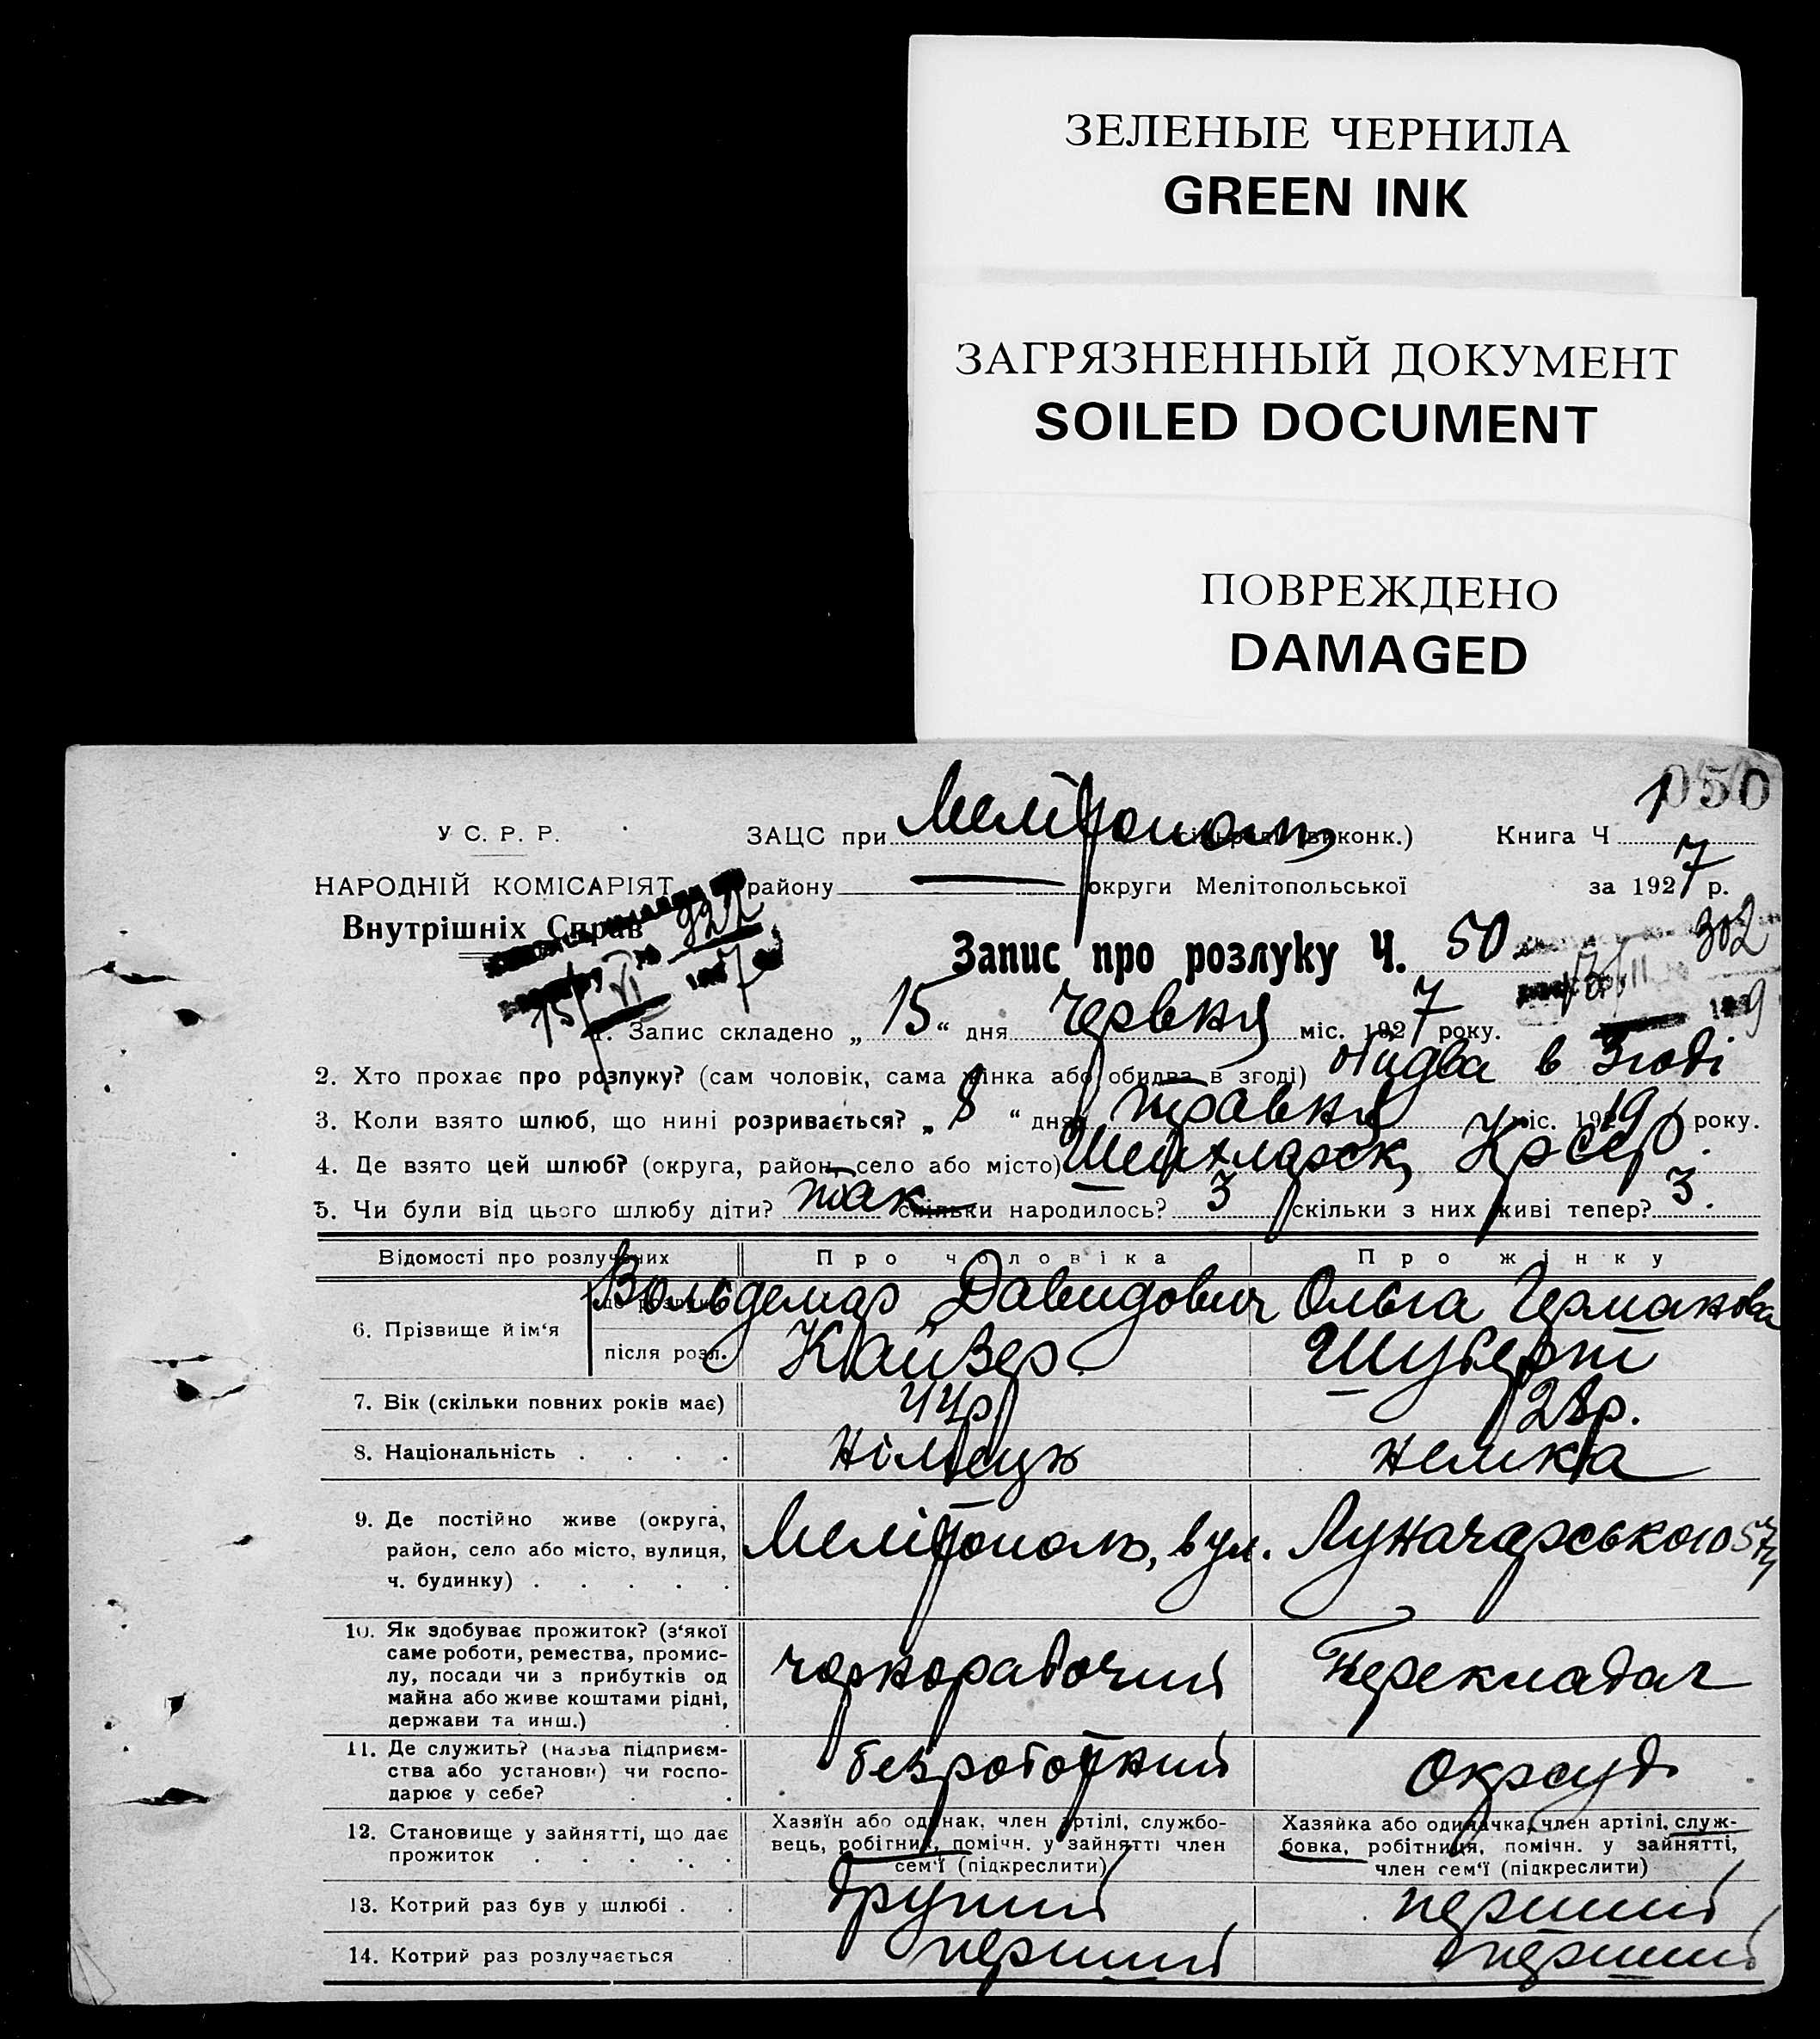 ЗЕЛЕНЫЕ ЧЕРНИЛА
GREEN INK
ЗАГРЯЗНЕННЫЙ ДОКУМЕНТ
SOILED DOCUMENT
ПОВРЕЖДЕНО
DAMAGED
050
У С. Р. Р. ЗАЦС при Мелітополь виконк.) Книга Ч 1
НАРОДНІЙ КОМІСАРІЯТ району — округи Мелітопольської за 1927 р.
Внутрішніх Справ
302
Запис про розлуку Ч. 50
15/VI 1927
1. Запис складено „ 15 “ дня червня міс. 1927 року.
2. Хто прохає про розлуку? (сам чоловік, сама жінка або обидва в згоді) обидва в згоді
3. Коли взято шлюб, що нині розривається? „ 8 “ дня травня міс. 1919 року.
4. Де взято цей шлюб? (округа, район, село або місто)
5. Чи були від цього шлюбу діти? так скільки народилось? 3 скільки з них живі тепер? 3.
Відомості про розлучених Про чоловіка Про жінку
6. Прізвище й ім‘я до розлуки Вольдемар Давидович Ольга Германова
після розл. Кайзер Шуберт
7. Вік (скільки повних років має) 44р. 28р.
8. Національність . . . . німець немка
9. Де постійно живе (округа, район, село або місто, вулиця, ч. будинку) . . . . . Мелітополь, вул. Луначарського 57
10. Як здобуває прожиток? (з‘якої саме роботи, ремества, промислу, посади чи з прибутків од майна або живе коштами рідні, держави та инш.) чорнорабочий Перекладач
11. Де служить? (назва підприємства або установи) чи господарює у себе? безроботний Окрсуд
12. Становище у зайнятті, що дає прожиток . . . . . Хазяїн або одинак, член артілі, службовець, робітник, помічн. у зайнятті член сем‘ї (підкреслити) Хазяйка або одиначка, член артілі, службовка, робітниця, помічн. у зайнятті, член сем‘ї (підкреслити)
13. Котрий раз був у шлюбі . . другий перший
14. Котрий раз розлучається . перший перший